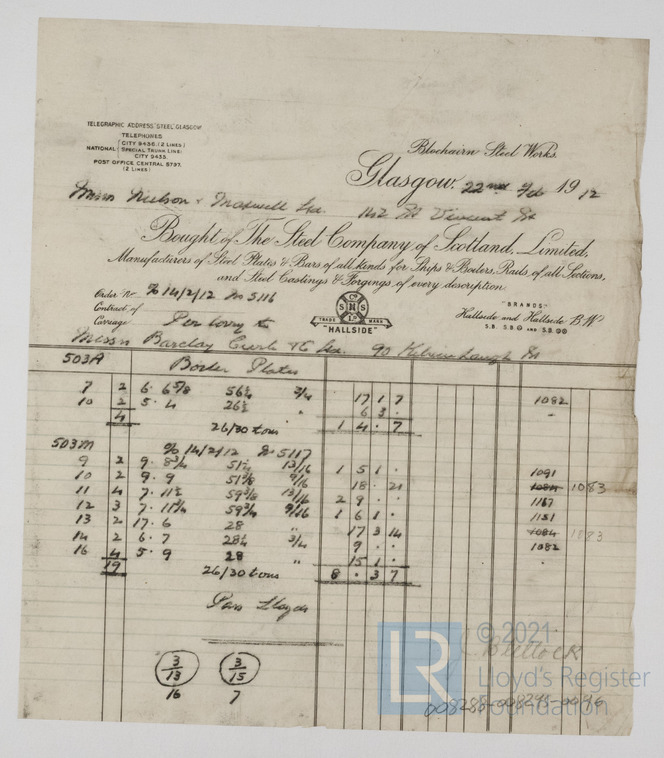 TELEGRAPHIC ADDRESS, STEEL, GLASGOW.
TELEPHONES
NATIONAL { CITY 9436. (2 LINES)
SPECIAL TRUNK LINE:
CITY 9435.
POST OFFICE CENTRAL 5797.
(2 LINES)
Blochairn Steel Works.
Glasgow, 22nd Feb 1912
Messrs Neilson & Maxwell Ltd. 142 St Vincent St
Bought of The Steel Company of Scotland, Limited,
Manufacturers of Steel Plates & Bars of all kinds for Ships & Boilers, Rails, of all Sections,
and Steel Castings & Forgings of every description.
Order No % 14/2/12 No 5116
Contract of
Carriage Per lorry to
Co SNS LD
TRADE MARK
"HALLSIDE"
"BRANDS"
Hallside and Hallside B.W.
S.B. S.B AND S.B.
Messrs Barclay Curle & Co Ltd. 90 Kelvinhaugh St
503A Boiler Plates
7 2 6. 6 5/8 56 1/2 3/4 17 1 7 1082
10 2 5. 4 26 1/2 " 6 3 . "
4 26/30 tons 1 4 . 7
503M % 14/2/12 No 5117
9 2 9. 8 3/4 51 1/2 13/16 1 5 1 . 1091
10 2 9. 9 51 5/8 9/16 18 . 21 1084 1083
11 4 7. 11 1/2 59 3/8 13/16 2 9 . . 1157
12 3 7. 11 3/4 59 3/4 9/16 1 6 1 . 1151
13 2 17. 6 28 " 17 3 14 1084 1083
14 2 6. 7 28 1/2 3/4 9 . . 1082
16 4 5. 9 28 " 15 1 . "
19 26/30 tons 8 . 3 7
Pass Lloyds
3/13 3/15
16 7
© 2021
LR Lloyd's Register
Foundation
008288-008295-0096